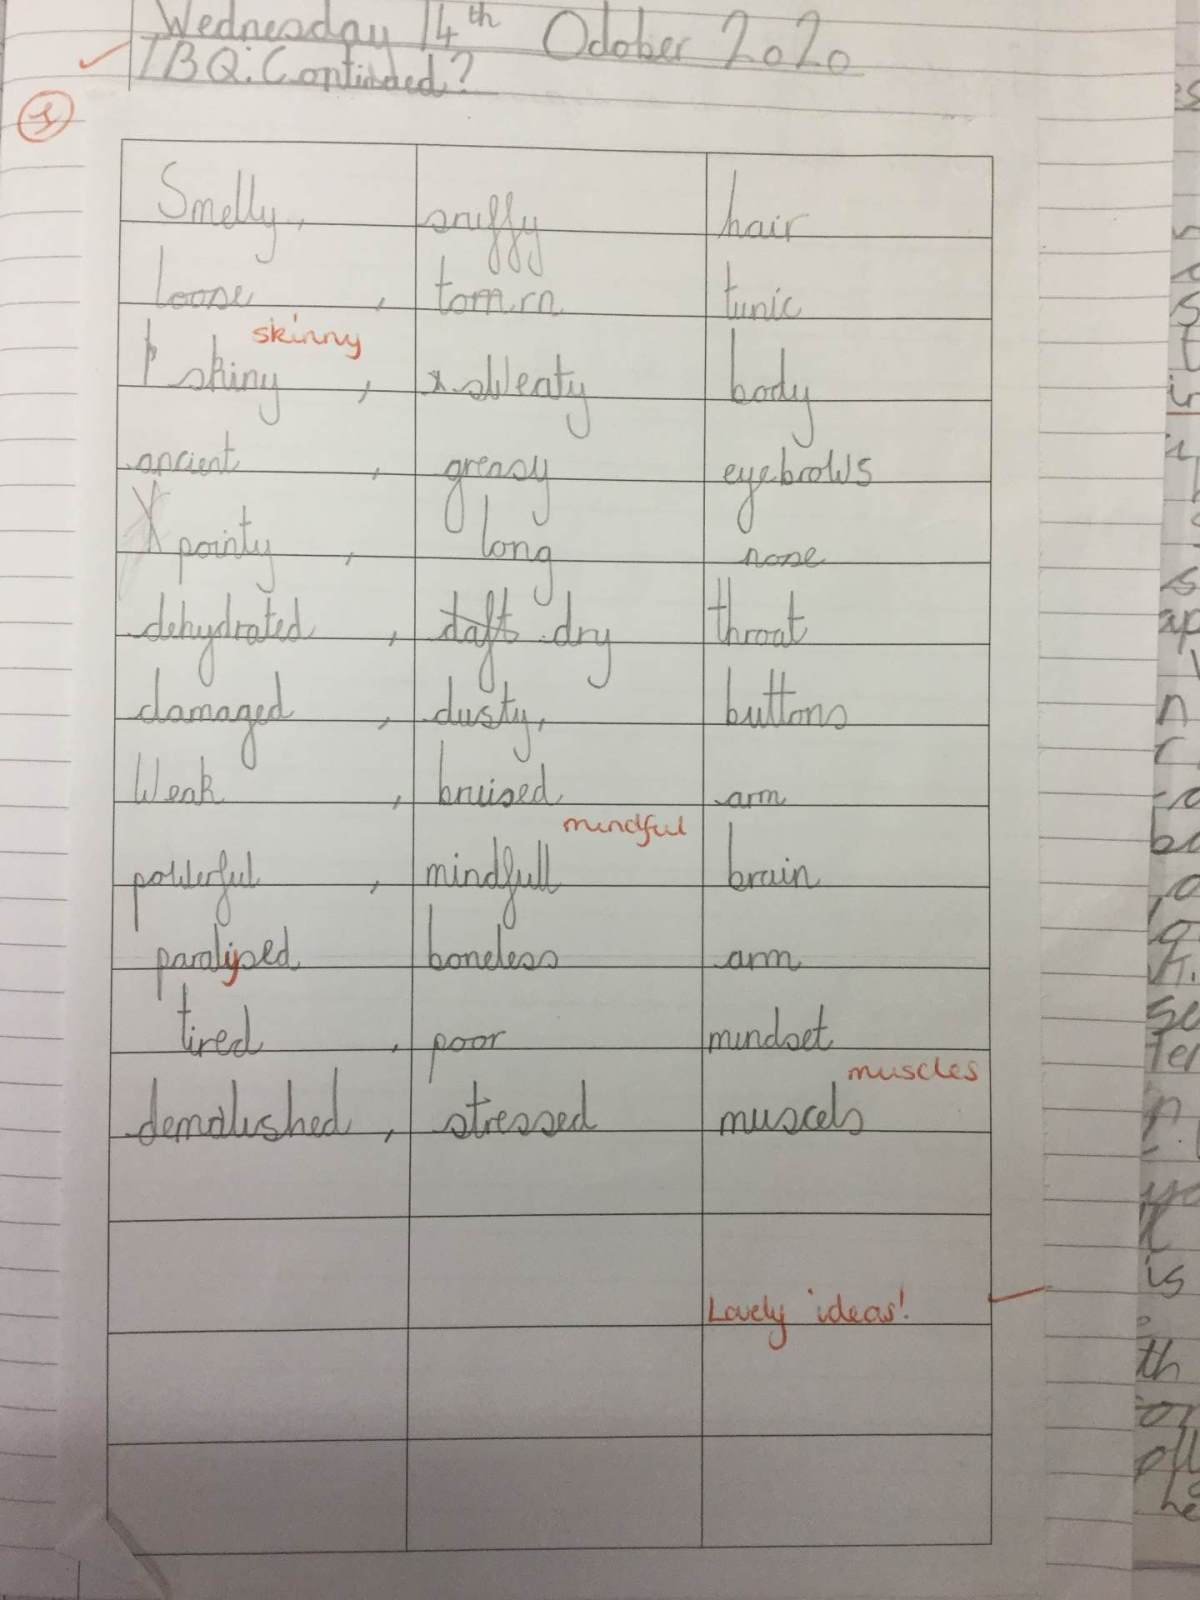 Wednesday 14th October 2020
IBQ: Continued?
Smelly, sniffy hair
loose , torn tunic
skinny
skiny , sweaty body
ancient , greasy eyebrows
pointy , long nose
dehydrated , daft dry throat
damaged , dusty, buttons
Weak , bruised arm
mindful
powerful , mindfull brain
paralysed boneless arm
tired , poor mindset
muscles
demolished , stressed muscels
Lovely ideas!